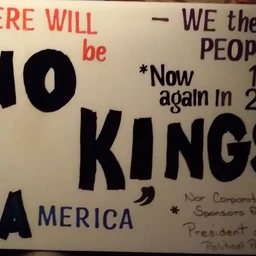 ERE WILL
be
NO
KINGS
AMERICA
- WE the
PEOP
*Now
again in 2
Nor Corporat
* Sponsors
President
Political P